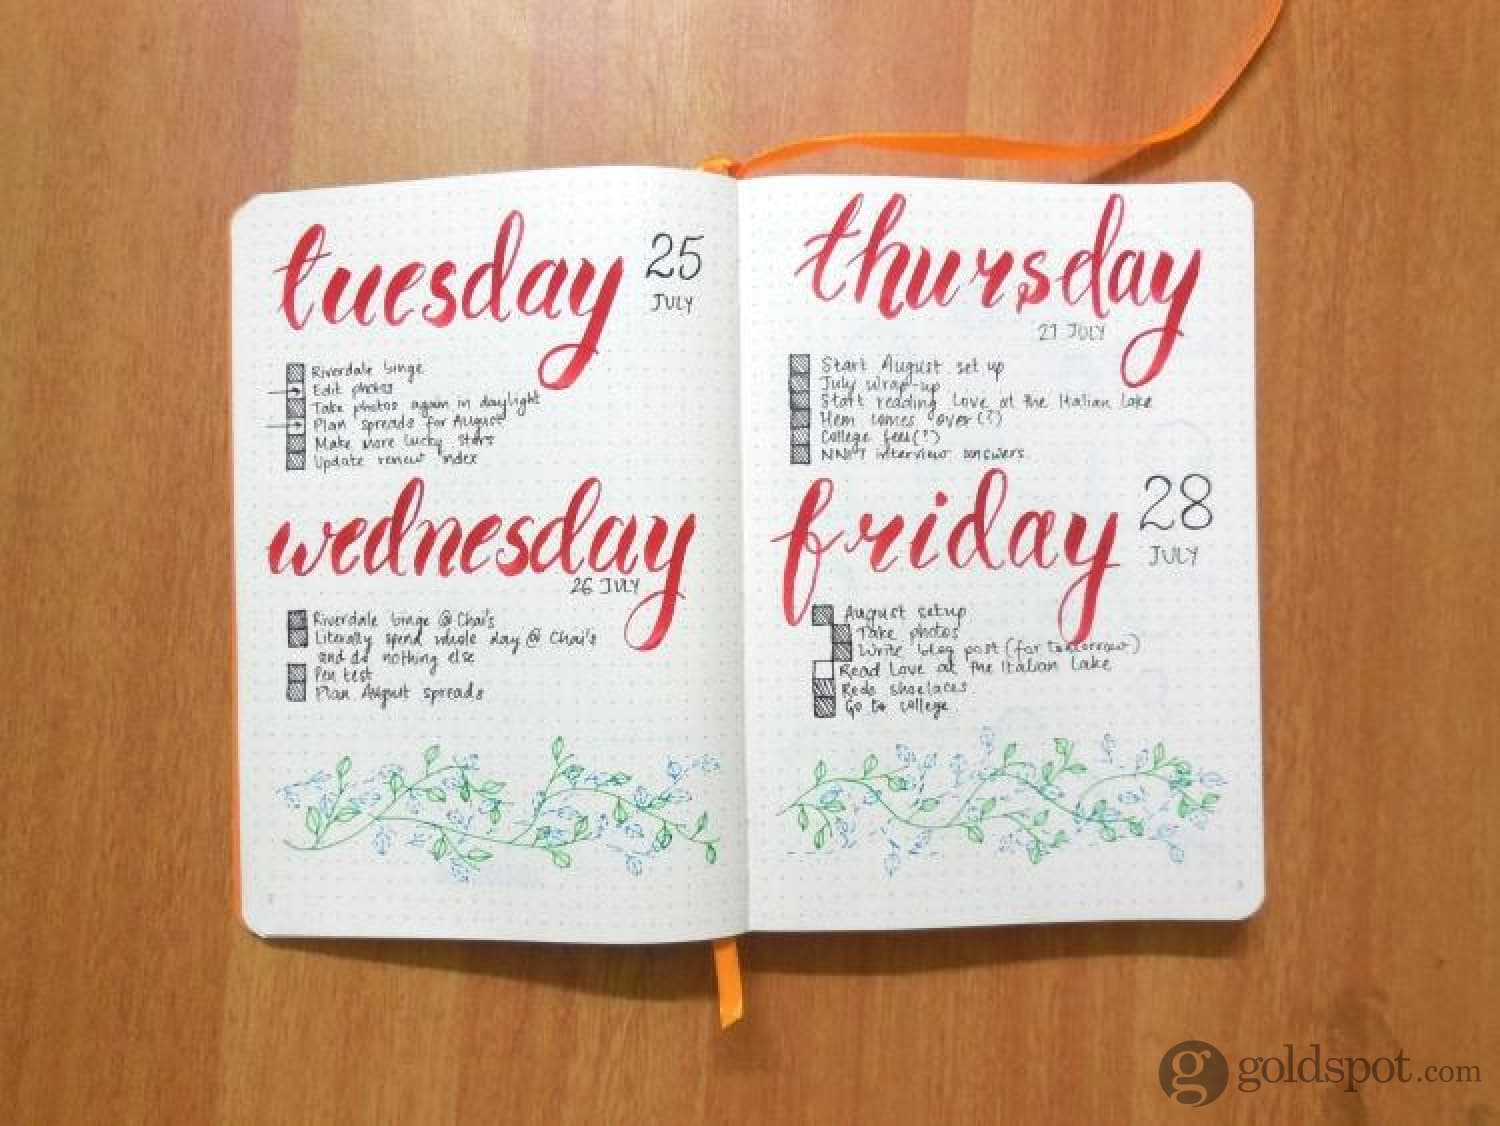 tuesday
25
JULY
Riverdale binge
Edit photos
Take photos again in daylight
Plan spreads for August
Make more lucky stars
Update review index
wednesday
26 JULY
Riverdale binge @ Chai's
Literally spend whole day @ Chai's
and do nothing else
Pen test
Plan August spreads
thursday
27 JULY
Start August set up
July wrap-up
Start reading Love at the Italian Lake
Hem comes over (?)
College fees (?)
interview answers
friday
28
JULY
August setup
Take photos
Write blog post (for tomorrow)
Read Love at the Italian Lake
Redo shoelaces
Go to college
g goldspot.com